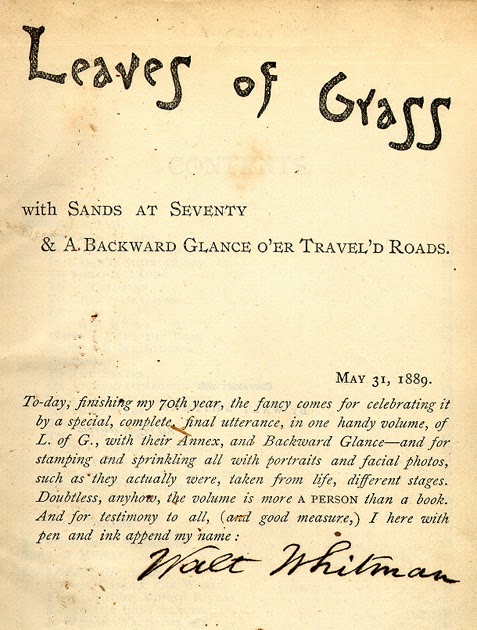 Leaves of Grass
with SANDS AT SEVENTY
& A BACKWARD GLANCE O'ER TRAVEL'D ROADS.
MAY 31, 1889.
To-day, finishing my 70th year, the fancy comes for celebrating it
by a special, complete, final utterance, in one handy volume, of
L. of G., with their Annex, and Backward Glance—and for
stamping and sprinkling all with portraits and facial photos,
such as they actually were, taken from life, different stages.
Doubtless, anyhow, the volume is more A PERSON than a book.
And for testimony to all, (and good measure,) I here with
pen and ink append my name :
Walt Whitman